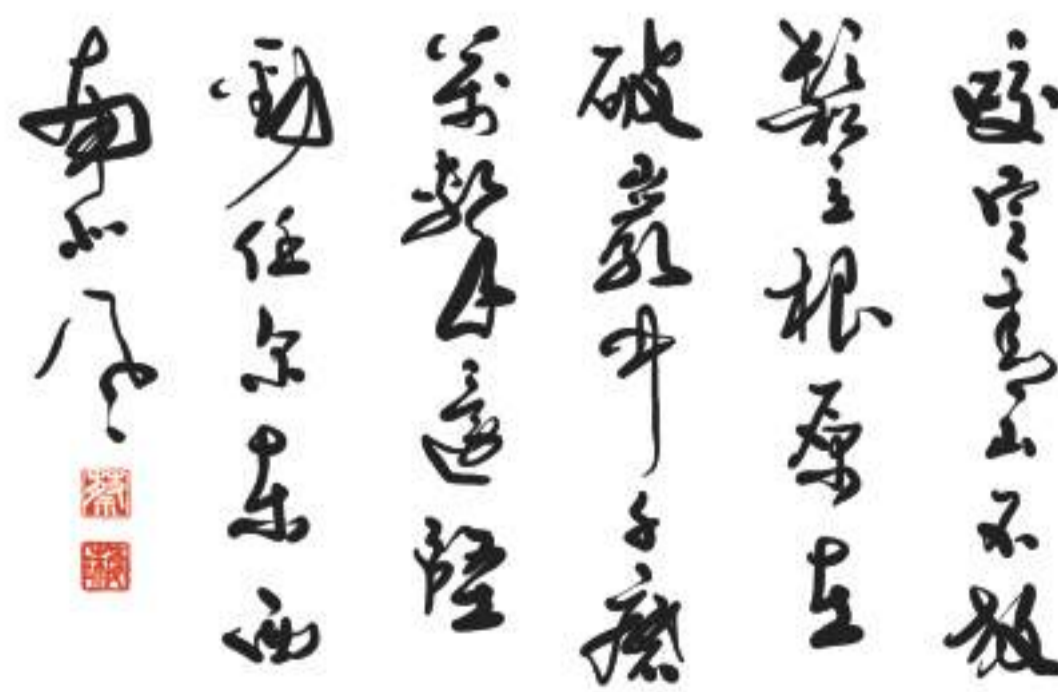 咬定青山不放
鬆立根原在
破巖中千磨
萬擊還堅
勁任尔東西
南北風
蔡